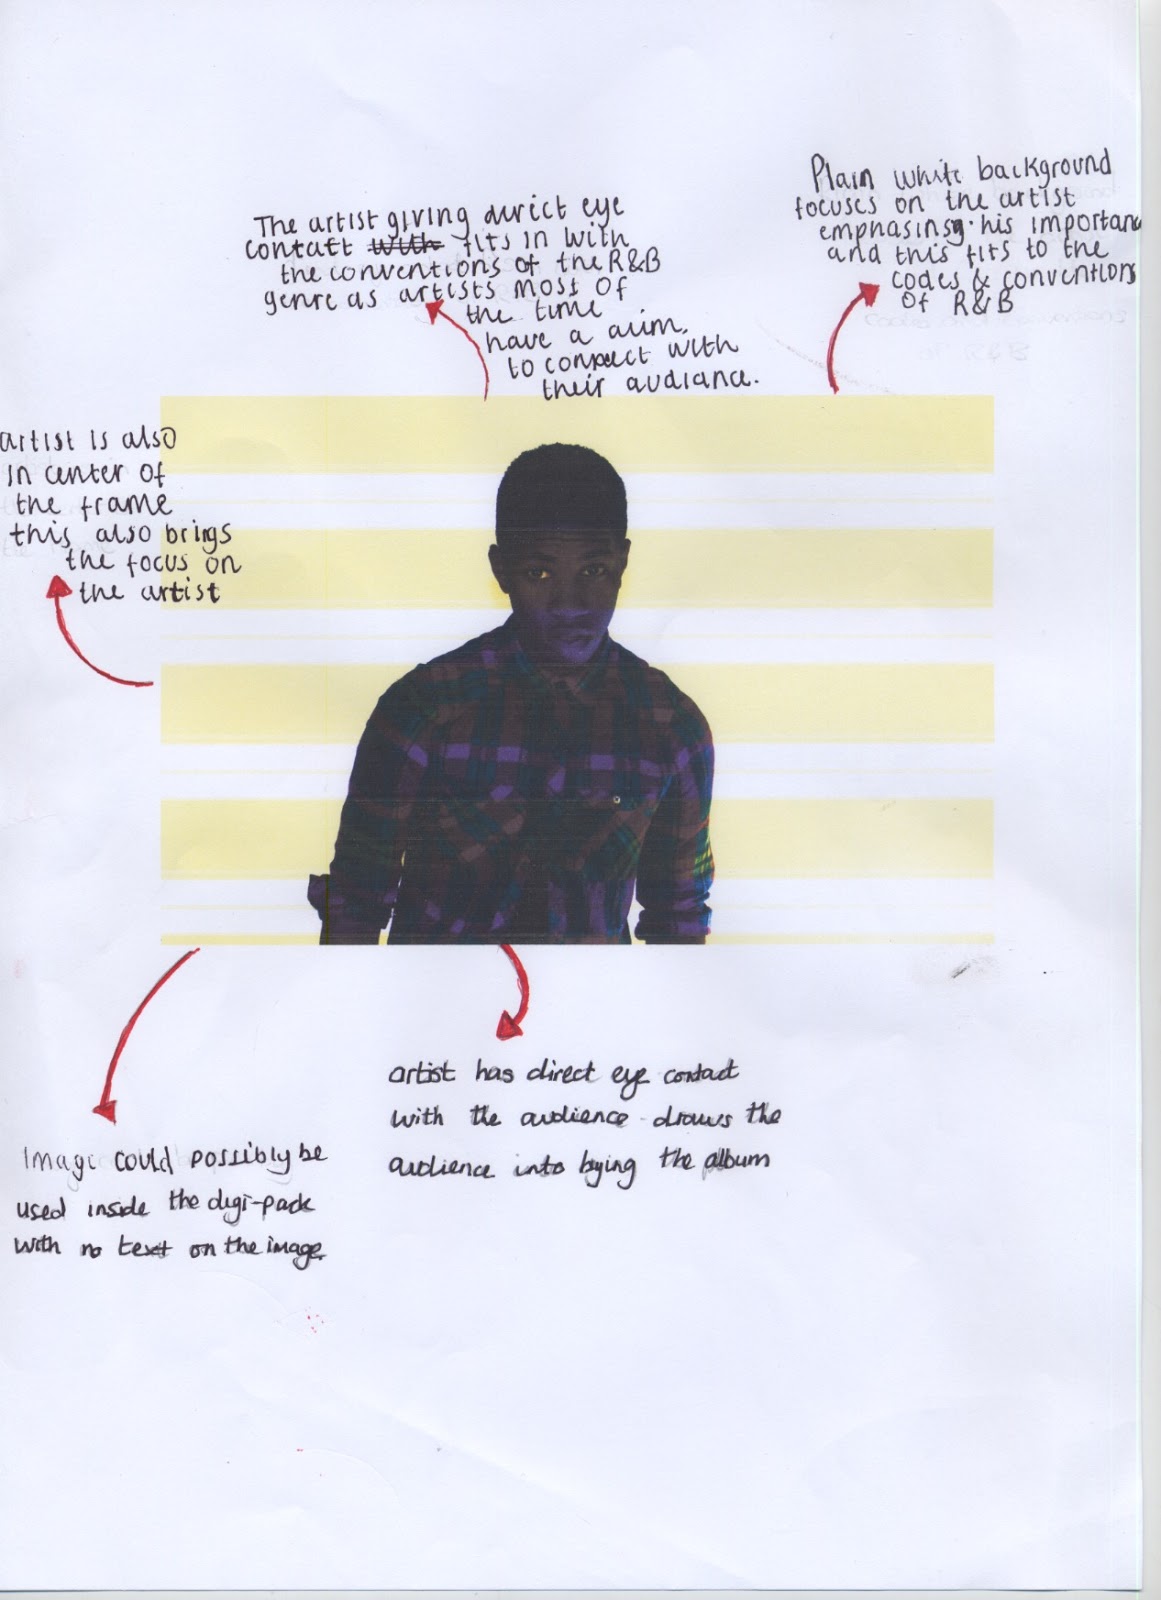 Plain white background
focuses on the artist
emphasing his importanc
and this fits to the
codes & conventions
of R&B
The artist giving direct eye
contact with fits in with
the conventions of the R&B
genre as artists most of
the time
have a aim
to connect with
their audiance.
artist is also
in center of
the frame
this also brings
the focus on
the artist
artist has direct eye contact
with the audience draws the
audience into bying the album
Image could possibly be
used inside the digi-pack
with no text on the image.